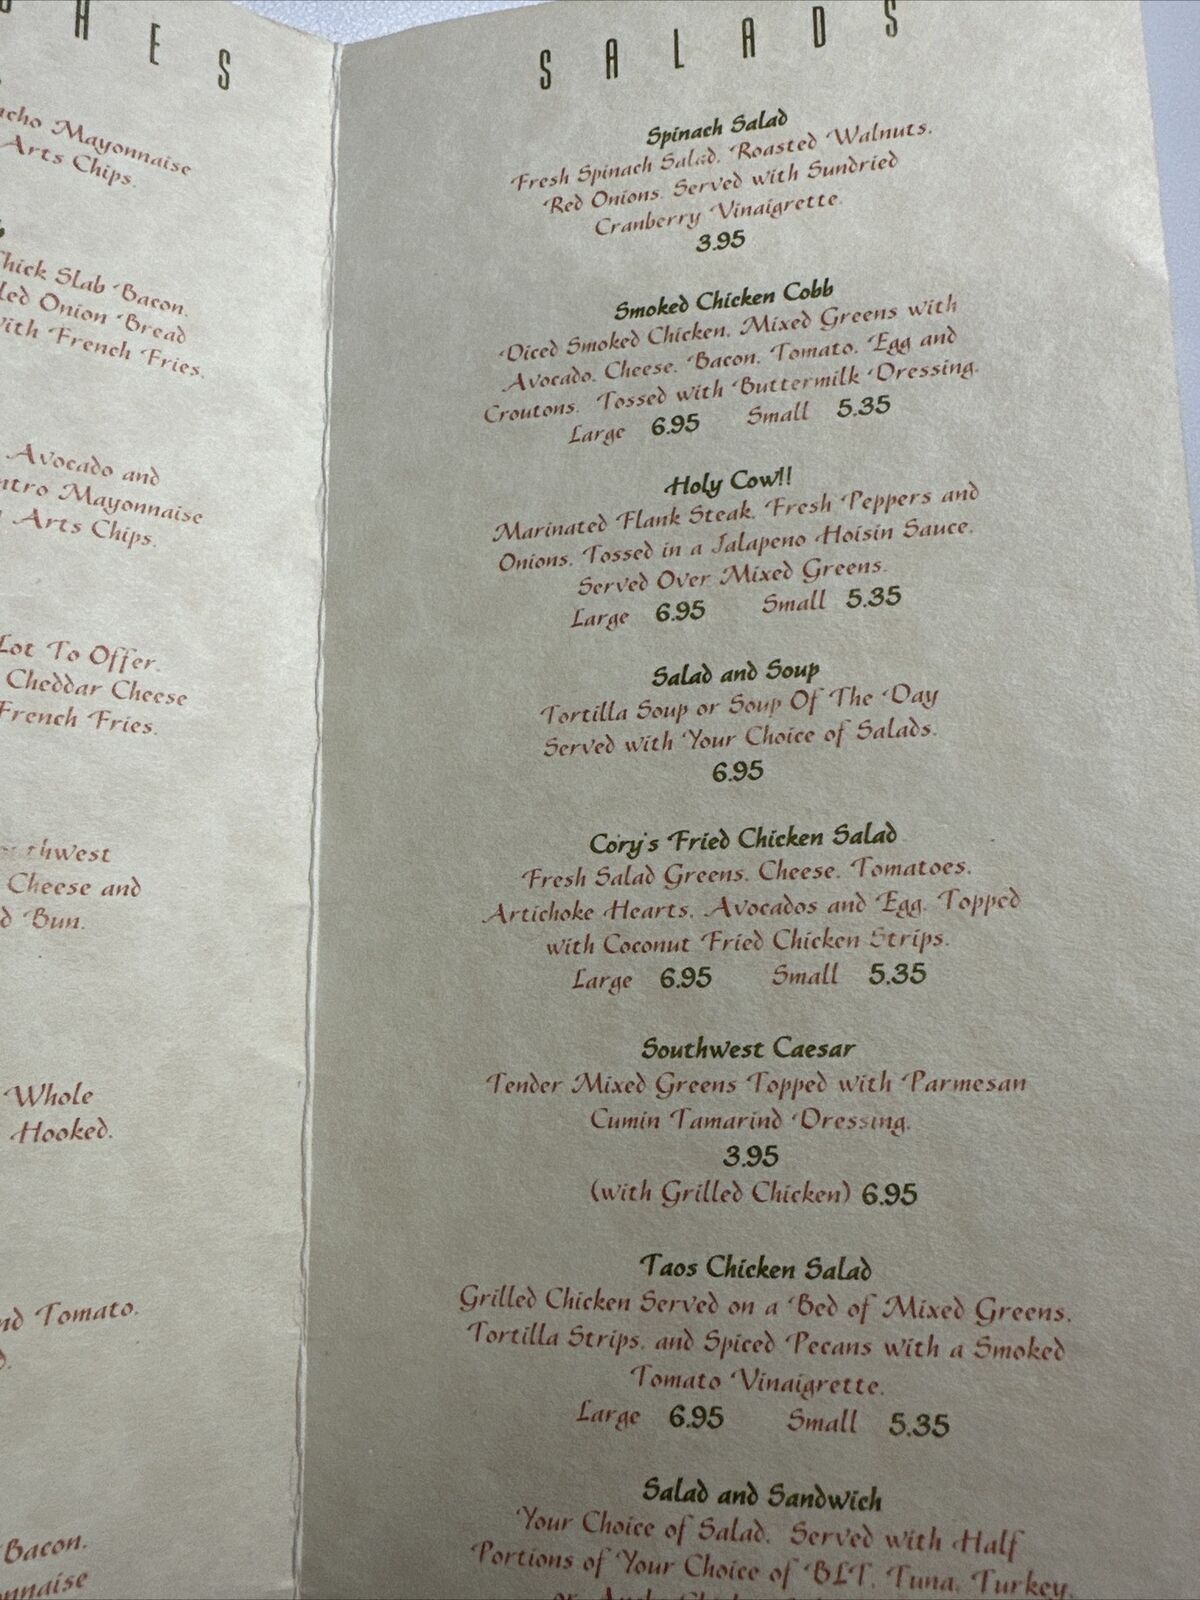 HES
cho Mayonnaise
Arts Chips.
hick Slab Bacon,
led Onion Bread
with French Fries.
Avocado and
ntro Mayonnaise
Arts Chips.
Lot To Offer.
Cheddar Cheese
French Fries.
thwest
Cheese and
d Bun.
Whole
Hooked.
nd Tomato.
d.
Bacon.
onnaise
SALADS
Spinach Salad
Fresh Spinach Salad, Roasted Walnuts,
Red Onions. Served with Sundried
Cranberry Vinaigrette.
3.95
Smoked Chicken Cobb
Diced Smoked Chicken, Mixed Greens with
Avocado, Cheese, Bacon, Tomato, Egg and
Croutons. Tossed with Buttermilk Dressing.
Large 6.95 Small 5.35
Holy Cow!!
Marinated Flank Steak, Fresh Peppers and
Onions, Tossed in a Jalapeno Hoisin Sauce.
Served Over Mixed Greens.
Large 6.95 Small 5.35
Salad and Soup
Tortilla Soup or Soup Of The Day
Served with Your Choice of Salads.
6.95
Cory's Fried Chicken Salad
Fresh Salad Greens, Cheese, Tomatoes,
Artichoke Hearts, Avocados and Egg. Topped
with Coconut Fried Chicken Strips.
Large 6.95 Small 5.35
Southwest Caesar
Tender Mixed Greens Topped with Parmesan
Cumin Tamarind Dressing.
3.95
(with Grilled Chicken) 6.95
Taos Chicken Salad
Grilled Chicken Served on a Bed of Mixed Greens,
Tortilla Strips, and Spiced Pecans with a Smoked
Tomato Vinaigrette.
Large 6.95 Small 5.35
Salad and Sandwich
Your Choice of Salad, Served with Half
Portions of Your Choice of BLT, Tuna, Turkey,
or